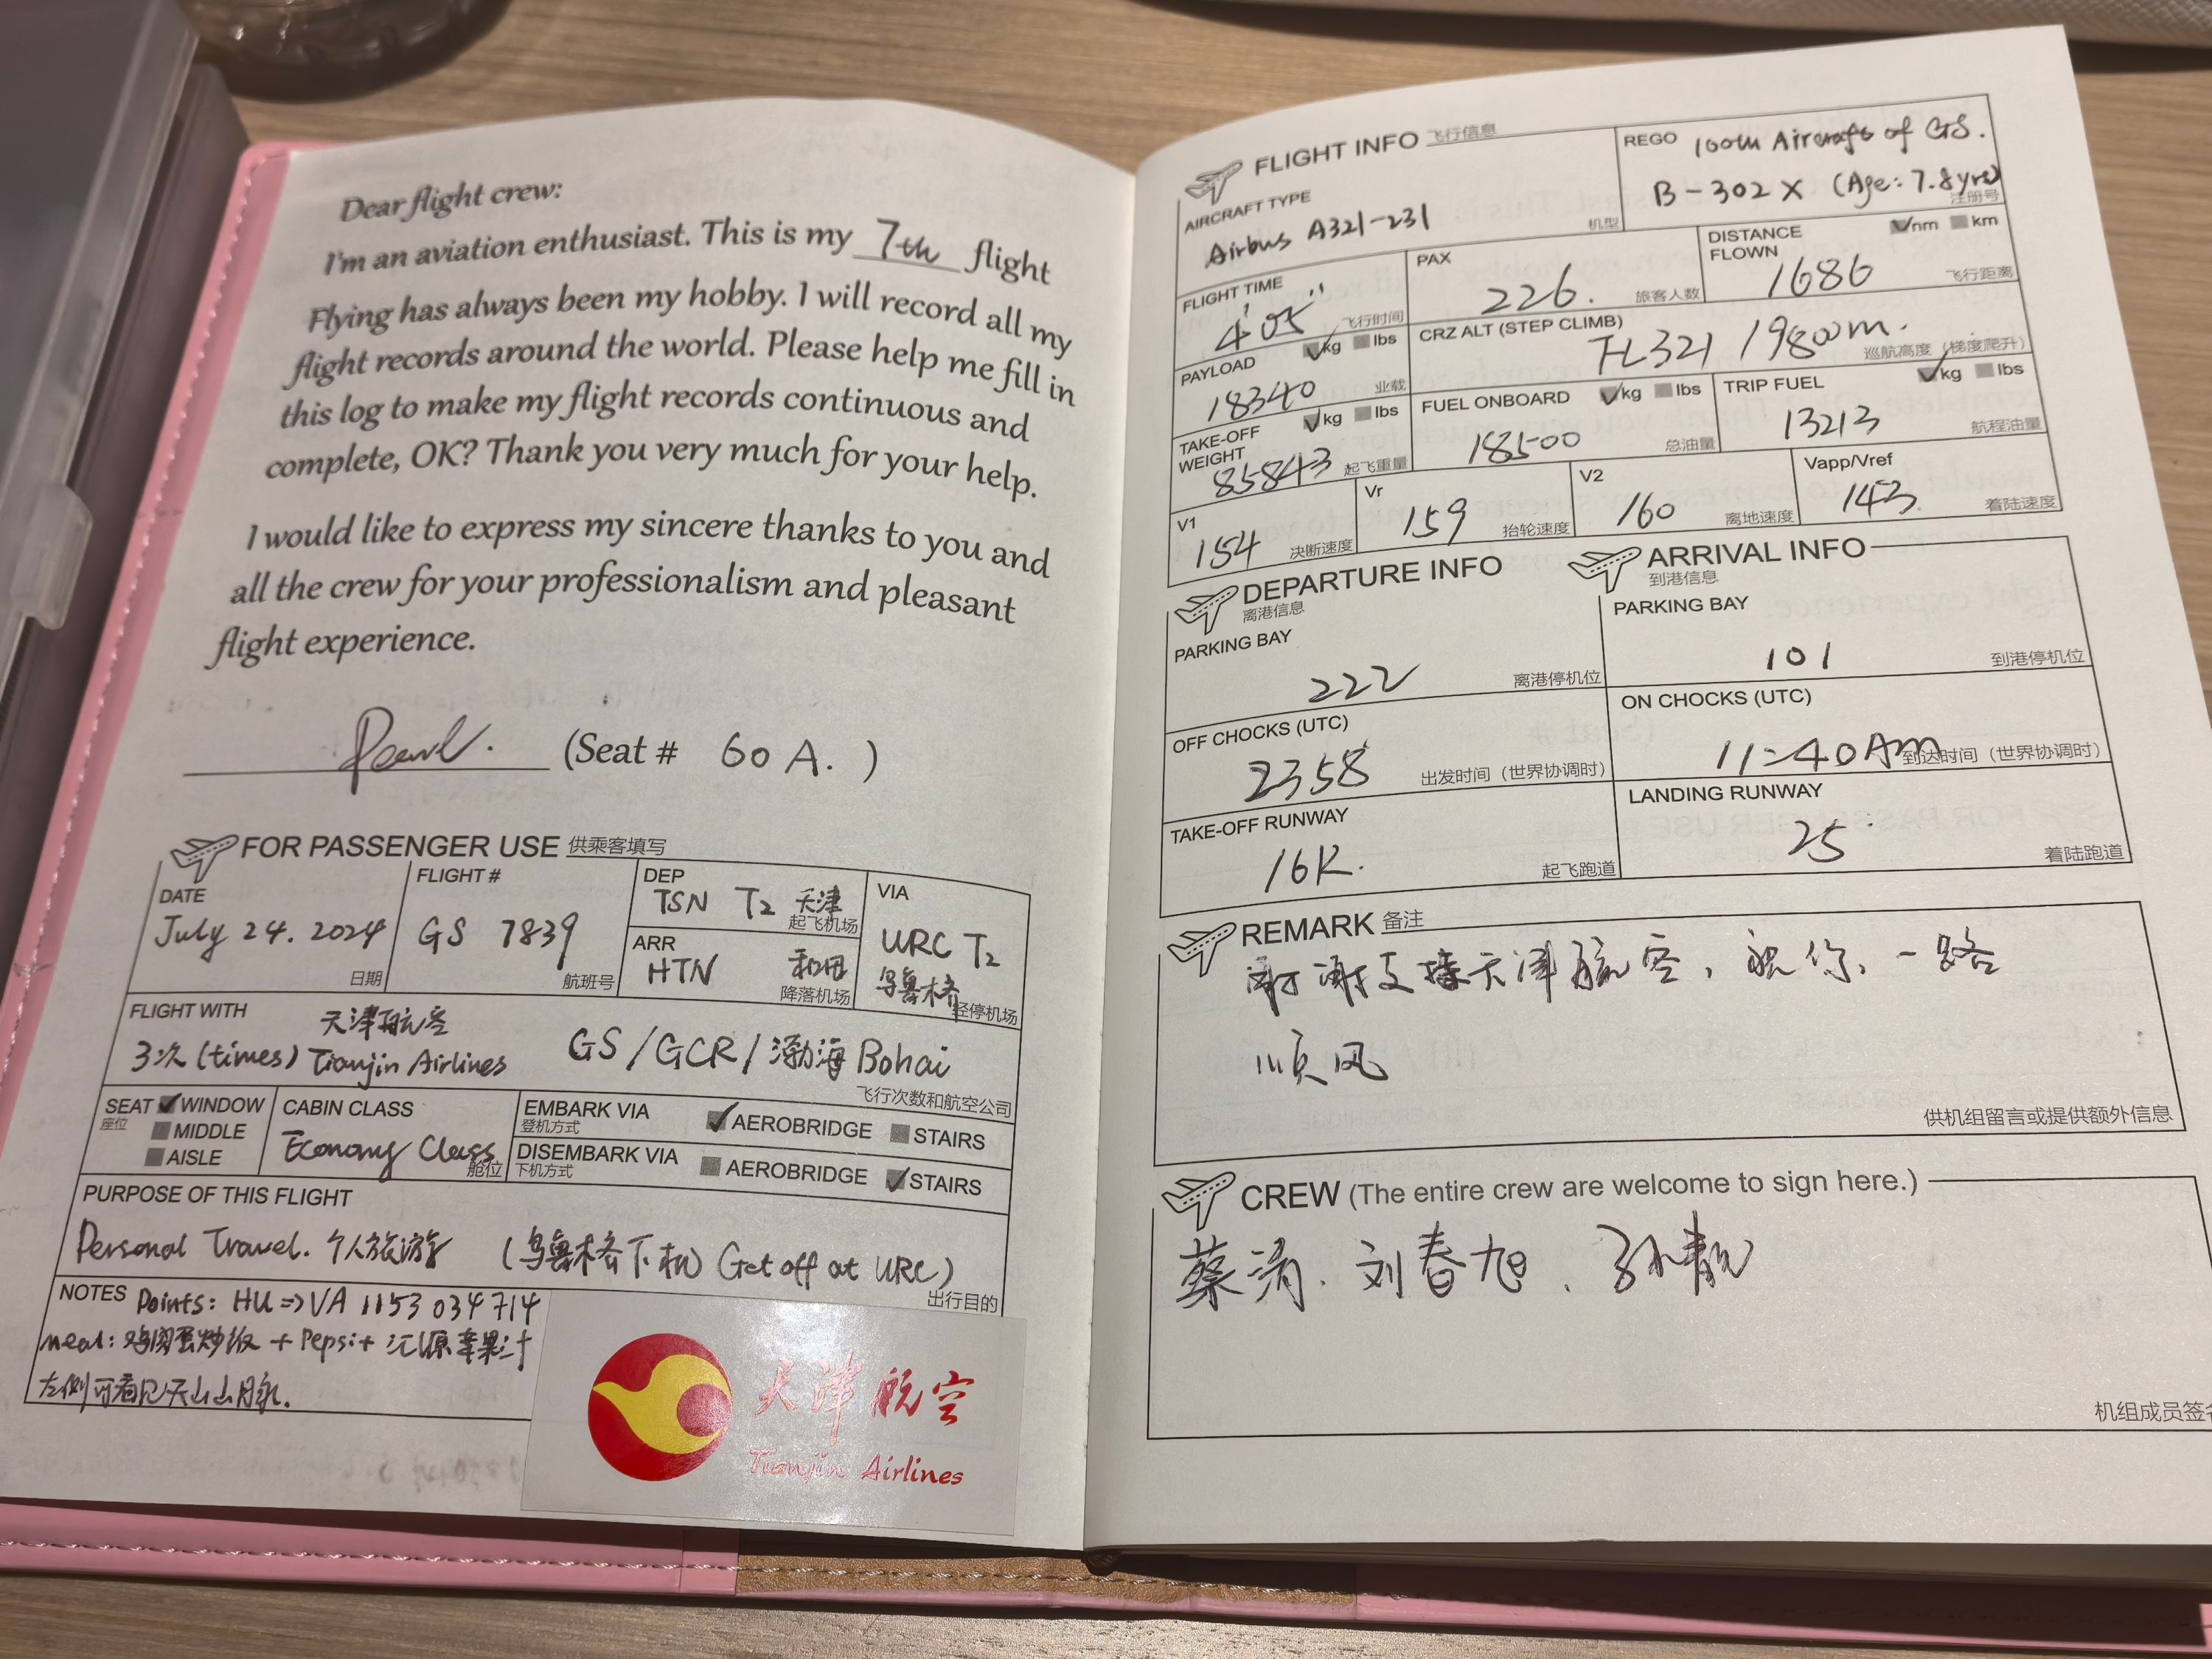 Dear flight crew:
I'm an aviation enthusiast. This is my 7th flight
Flying has always been my hobby. I will record all my
flight records around the world. Please help me fill in
this log to make my flight records continuous and
complete, OK? Thank you very much for your help.
I would like to express my sincere thanks to you and
all the crew for your professionalism and pleasant
flight experience.
Pearl. (Seat # 60 A. )
FOR PASSENGER USE 供乘客填写
DATE
July 24. 2024
日期
FLIGHT #
GS 7839
航班号
DEP
TSN T2 天津
起飞机场
ARR
HTN 和田
降落机场
VIA
URC T2
乌鲁木齐
经停机场
FLIGHT WITH 天津航空
3次 (times) Tianjin Airlines GS/GCR/渤海 Bohai
飞行次数和航空公司
SEAT WINDOW
座位
MIDDLE
AISLE
CABIN CLASS
Economy Class
舱位
EMBARK VIA AEROBRIDGE STAIRS
登机方式
DISEMBARK VIA AEROBRIDGE STAIRS
下机方式
PURPOSE OF THIS FLIGHT
Personal Travel. 个人旅游 (乌鲁木齐下机) Get off at URC)
出行目的
NOTES Points: HU => VA 1153 034 714
meal: 鸡肉蛋炒饭 + Pepsi + 汇源苹果汁
左侧可看见天山山脉.
天津航空
Tianjin Airlines
FLIGHT INFO 飞行信息
AIRCRAFT TYPE
Airbus A321-231
机型
REGO 100th Aircraft of GS.
B-302X (Age: 7.8yrs)
注册号
FLIGHT TIME
4'05''
飞行时间
PAX
226.
旅客人数
DISTANCE FLOWN nm km
1686
飞行距离
PAYLOAD kg lbs
18340
业载
CRZ ALT (STEP CLIMB)
FL321 / 9800m.
巡航高度（梯度爬升）
TAKE-OFF WEIGHT kg lbs
85843
起飞重量
FUEL ONBOARD kg lbs
18500
总油量
TRIP FUEL kg lbs
13213
航程油量
V1
154
决断速度
Vr
159
抬轮速度
V2
160
离地速度
Vapp/Vref
143
着陆速度
DEPARTURE INFO
离港信息
PARKING BAY
222
离港停机位
OFF CHOCKS (UTC)
2358
出发时间（世界协调时）
TAKE-OFF RUNWAY
16R.
起飞跑道
ARRIVAL INFO
到港信息
PARKING BAY
101
到港停机位
ON CHOCKS (UTC)
11:40Am
到达时间（世界协调时）
LANDING RUNWAY
25
着陆跑道
REMARK 备注
谢谢支持天津航空，祝你一路
顺风
供机组留言或提供额外信息
CREW (The entire crew are welcome to sign here.)
刘春旭
机组成员签名